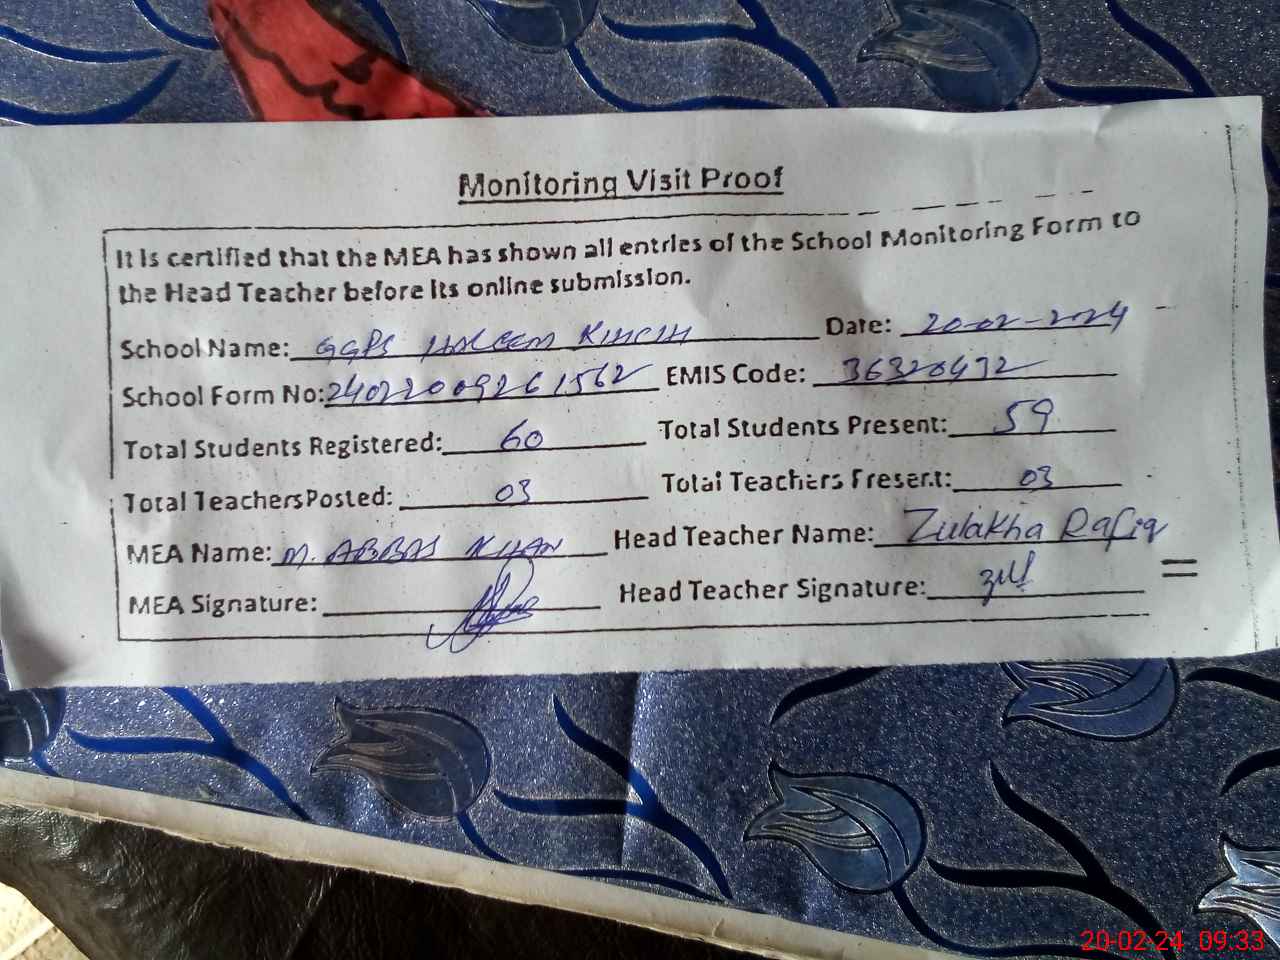 Monitoring Visit Proof
It is certified that the MEA has shown all entries of the School Monitoring Form to
the Head Teacher before its online submission.
School Name: GGPS Date: 20-02-2024
School Form No: 24022009261562 EMIS Code: 36320432
Total Students Registered: 60 Total Students Present: 59
Total Teachers Posted: 03 Total Teachers Present: 03
MEA Name: M. ABBAS KHAN Head Teacher Name: Zulakha Rafiq
MEA Signature: Head Teacher Signature:
20-02-24 09:33